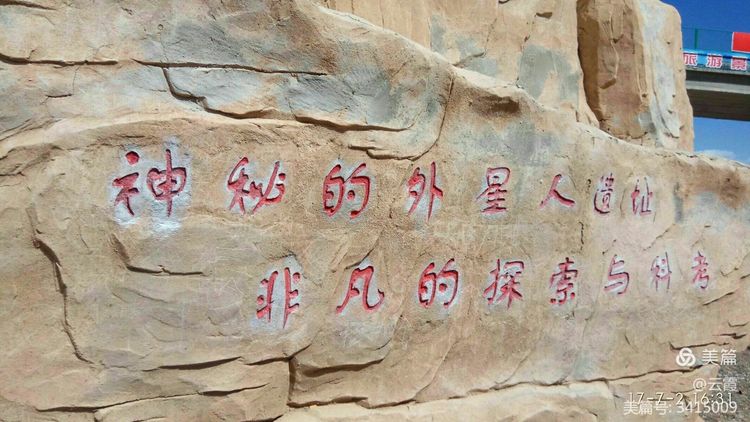 神秘的外星人遗址
非凡的探索与科考
旅游景
美篇
@云霞
17-7-2 16:31
美篇号: 3415009